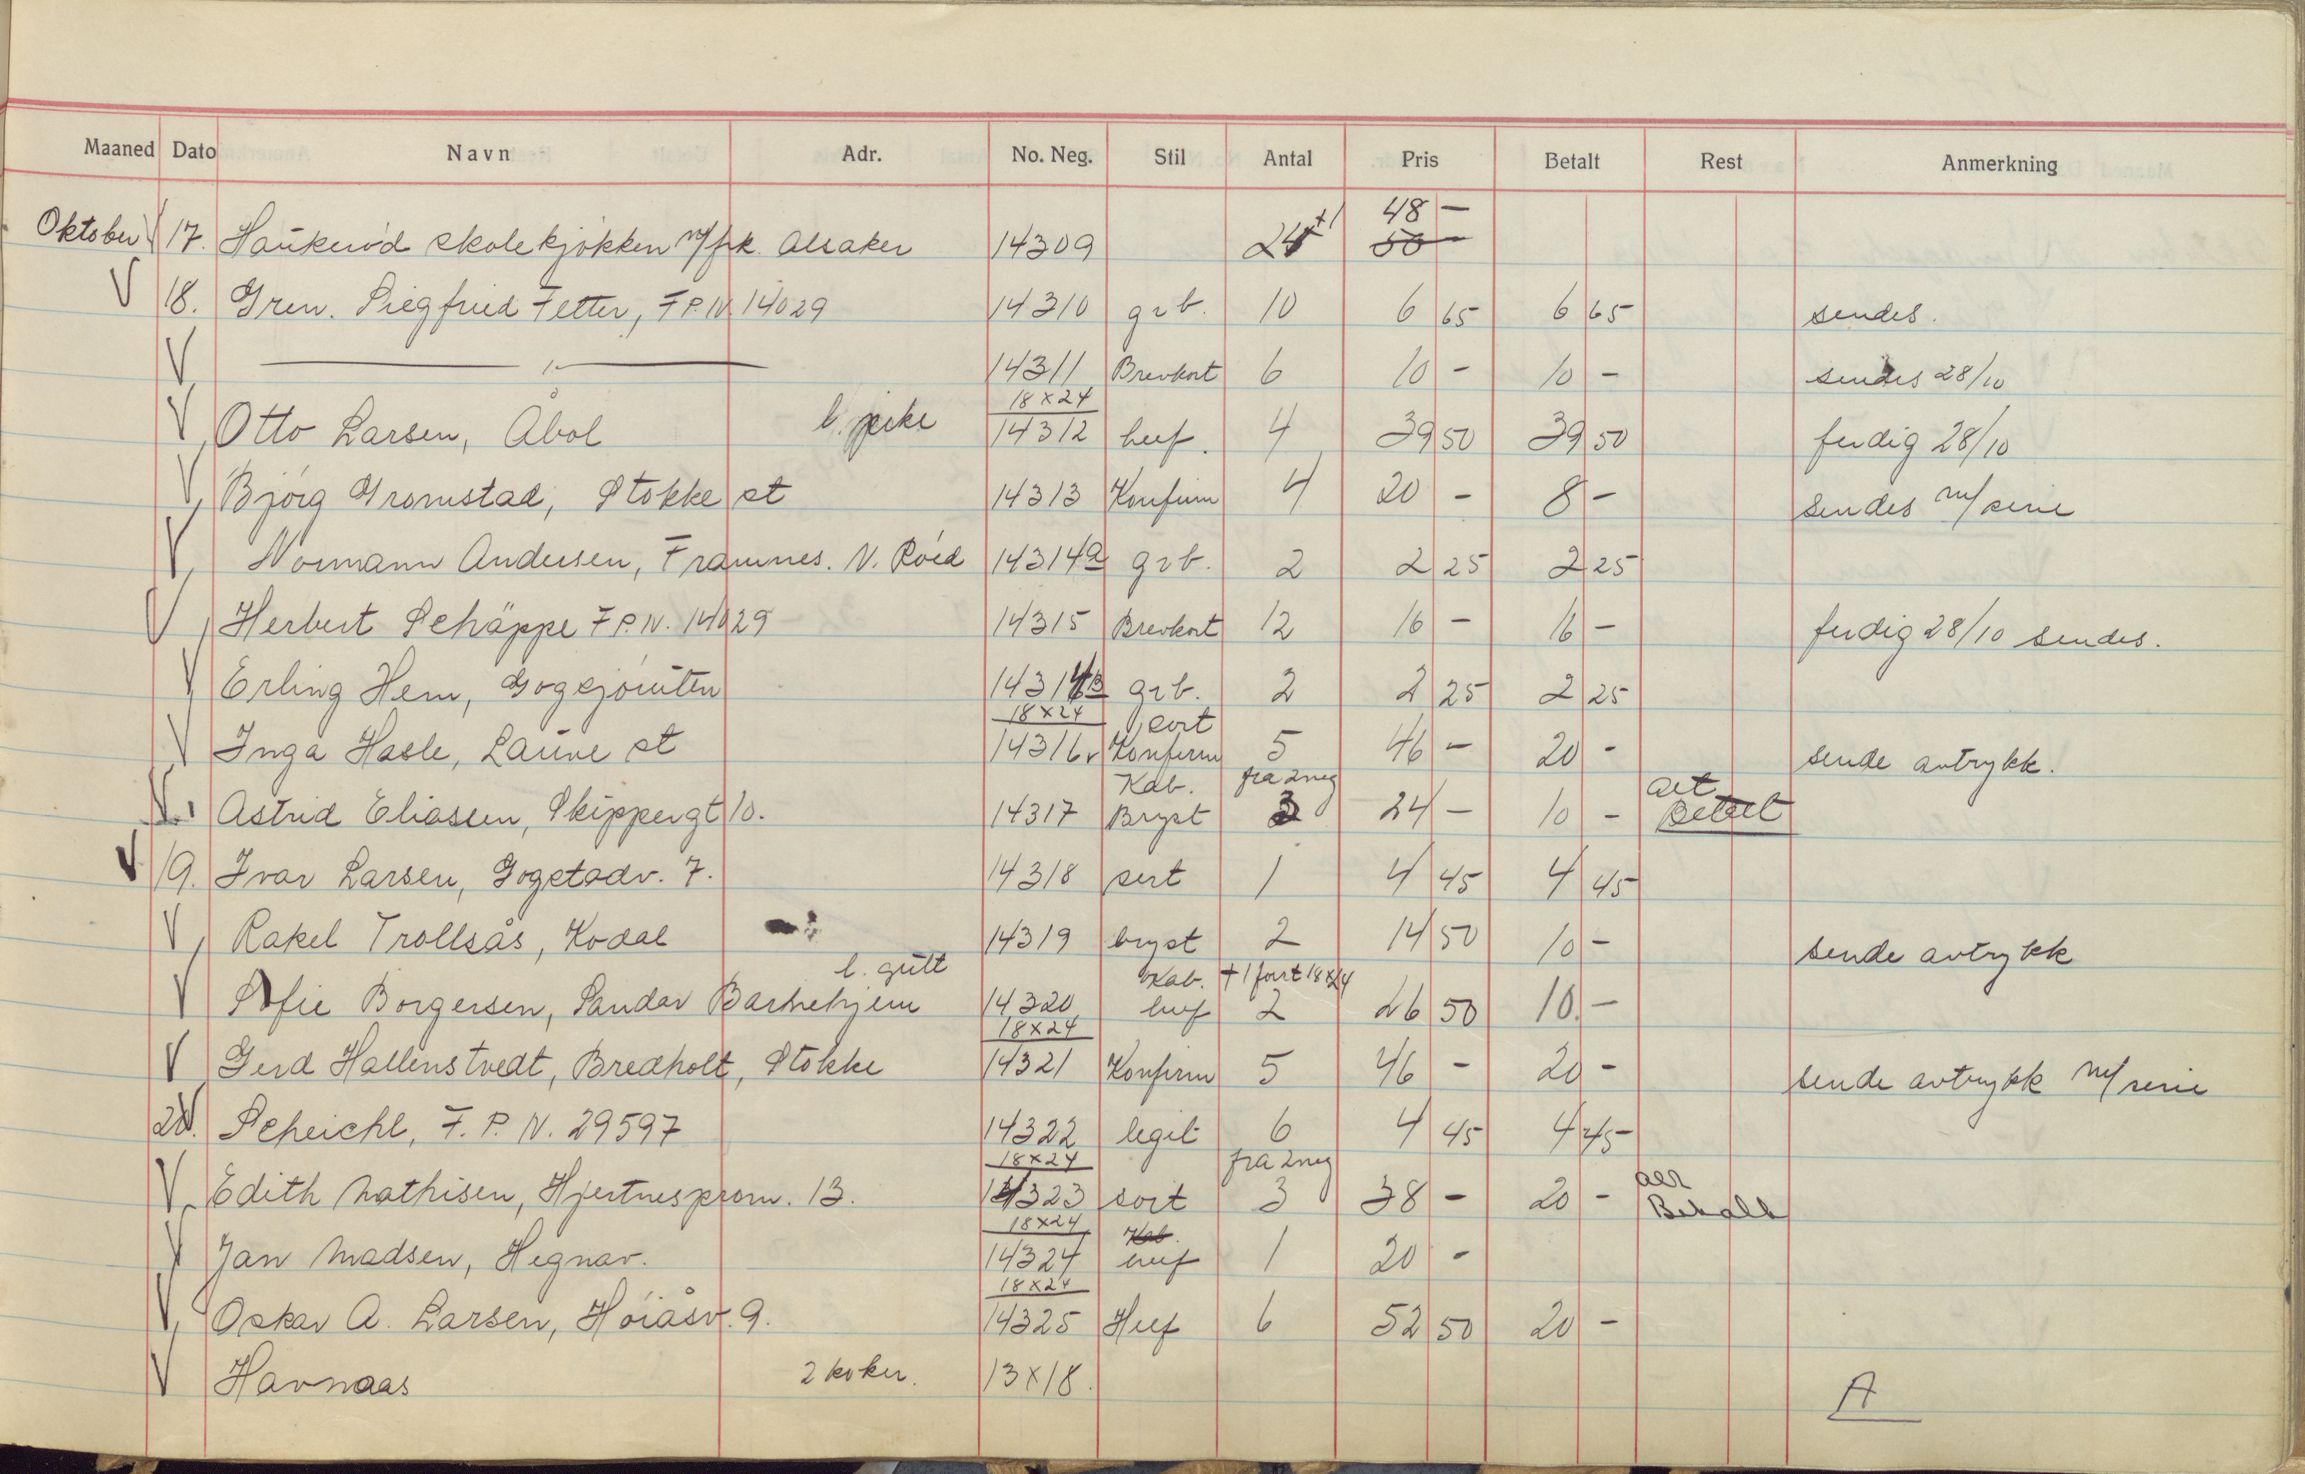 Maaned Dato Navn Adr. No. Neg. Stil Antal Pris Betalt Rest Anmerkning
48 —
Oktober V 17. Haukerød skolekjøkken v/frk. Alsaker 14309 24 +1 50 —
V 18. Gren. Siegfried Fetter, F.P.N. 14029 14310 grb. 10 6 65 6 65 sendes.
V 14311 Brevkort 6 10 - 10 - sendes 28/10
18 x 24
V Otto Larsen, Åbol l. pike 14312 huf. 4 39 50 39 50 ferdig 28/10
V Bjørg Gromstad, Stokke st 14313 Konfirm 4 20 - 8 - sendes m/serie
V Normann Andersen, Framnes. N. Röed 14314a grb. 2 2 25 2 25
V Herbert Schäppe F.P.N. 14029 14315 Brevkort 12 16 - 16 - ferdig 28/10 sendes.
V Erling Hem, Gogsjøruten 14314B grb. 2 2 25 2 25
18 x 24 sort
V Inga Hasle, Lauve st 14316 Konfirm 5 46 - 20 - sende avtrykk.
Kab. fra 2 neg alt
V Astrid Eliassen, Skippergt 10. 14317 Bryst 3 24 - 10 - Betalt
V 19. Ivar Larsen, Gogstadv. 7. 14318 sert 1 4 45 4 45
V Rakel Trollsås, Kodal 14319 bryst 2 14 50 10 - sende avtrykk
l. gutt Kab. + 1 fort 18x24
V Sofie Borgersen, Sandar Barnehjem 14320 huf 2 26 50 10. -
18 x 24
V Gerd Hallenstvedt, Bredholt, Stokke 14321 Konfirm 5 46 - 20 - sende avtrykk m/serie
20. V Scheichl, F. P. N. 29597 14322 legit 6 4 45 4 45 -
18 x 24 fra 2 neg alt
V Edith Mathisen, Hjertnesprom. 13. 14323 sort 3 38 - 20 - Betalt
18 x 24 Kab.
V Jan Madsen, Hegnav. 14324 huf 1 20 -
18 x 24
V Oskar A. Larsen, Høiåsv. 9. 14325 Huf 6 52 50 20 -
V Havnaas 2 koker. 13 x 18. A